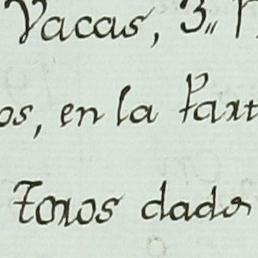 Vacas, 3.
os, en la Part
Toros dados